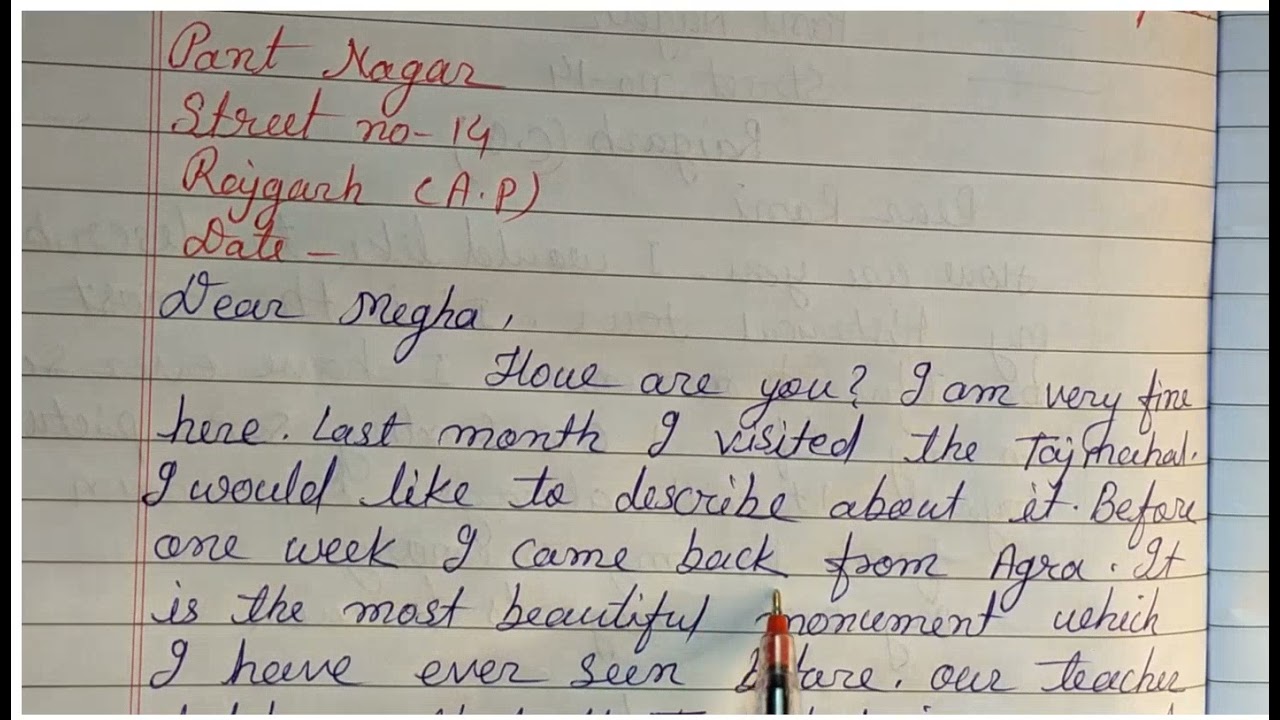 Pant Nagar
Street no-14
Rajgarh (A.P)
Date -
Dear Megha,
How are you? I am very fine
here. Last month I visited the Tajmahal.
I would like to describe about it. Before
one week I came back from Agra. It
is the most beautiful monument which
I have ever seen before. our teacher